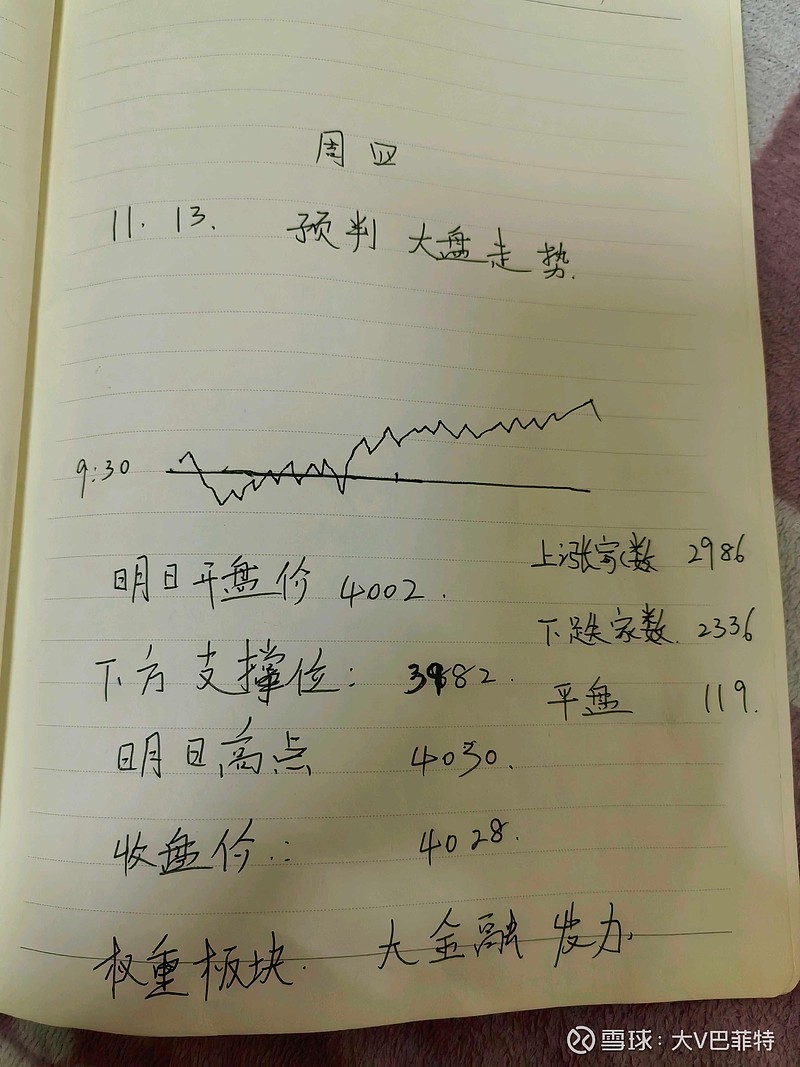 周四
11.13. 预判大盘走势.
9:30
明日开盘价 4002.
下方支撑位: 3982.
明日高点 4030.
收盘价.: 4028.
上涨家数 2986
下跌家数. 2336
平盘 119.
权重板块. 大金融发力.
雪球:大V巴菲特